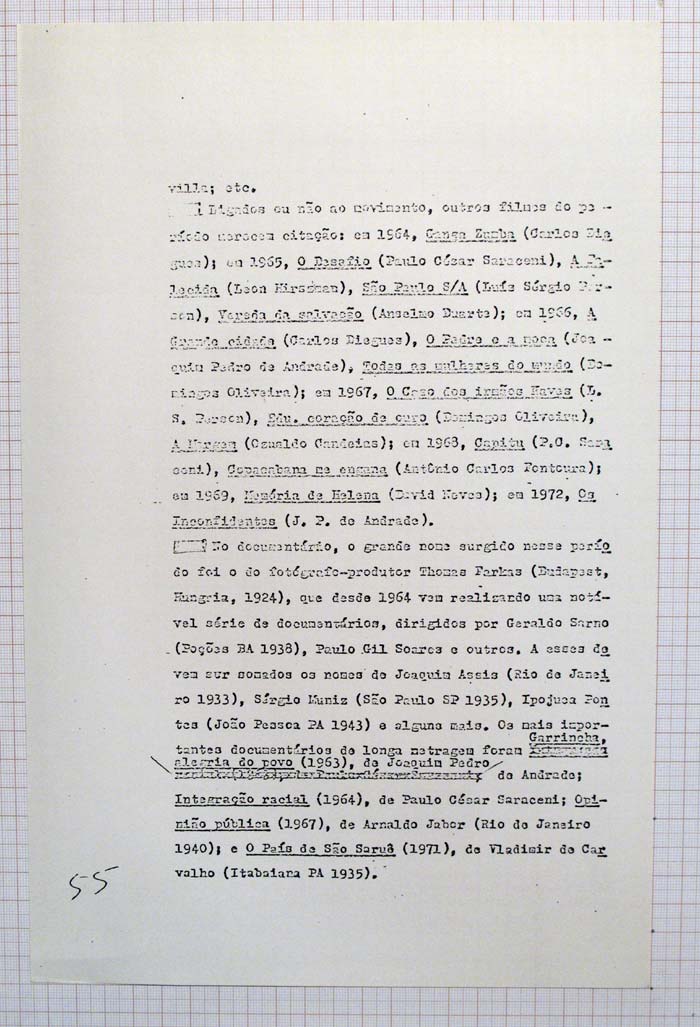 villa; etc.
Ligados ou não ao movimento, outros filmes do pe -
ríodo merecem citação: em 1964, Ganga Zumba (Carlos Die
gues); em 1965, O Desafio (Paulo César Saraceni), A Fa-
lecida (Leon Hirszman), São Paulo S/A (Luís Sérgio Per-
son), Vereda da salvação (Anselmo Duarte); em 1966, A
Grande cidade (Carlos Diegues), O Padre e a moça (Joa -
quim Pedro de Andrade), Todas as mulheres do mundo (Do-
mingos Oliveira); em 1967, O Caso dos irmãos Naves (L.
S. Person), Edu, coração de ouro (Domingos Oliveira),
A Margem (Ozualdo Candeias); em 1968, Capitu (P.C. Sara
ceni), Copacabana me engana (Antônio Carlos Fontoura);
em 1969, Memória de Helena (David Neves); em 1972, Os
Inconfidentes (J. P. de Andrade).
No documentário, o grande nome surgido nesse perío
do foi o do fotógrafo-produtor Thomas Farkas (Budapest,
Hungria, 1924), que desde 1964 vem realizando uma notá-
vel série de documentários, dirigidos por Geraldo Sarno
(Poções BA 1938), Paulo Gil Soares e outros. A esses de
vem ser somados os nomes de Joaquim Assis (Rio de Janei
ro 1933), Sérgio Muniz (São Paulo SP 1935), Ipojuca Pon
tes (João Pessoa PA 1943) e alguns mais. Os mais impor-
Garrincha,
tantes documentários de longa metragem foram
alegria do povo (1963), de Joaquim Pedro
de Andrade;
Integração racial (1964), de Paulo César Saraceni; Opi-
nião pública (1967), de Arnaldo Jabor (Rio de Janeiro
1940); e O País de São Saruê (1971), de Vladimir de Car
valho (Itabaiana PA 1935).
55